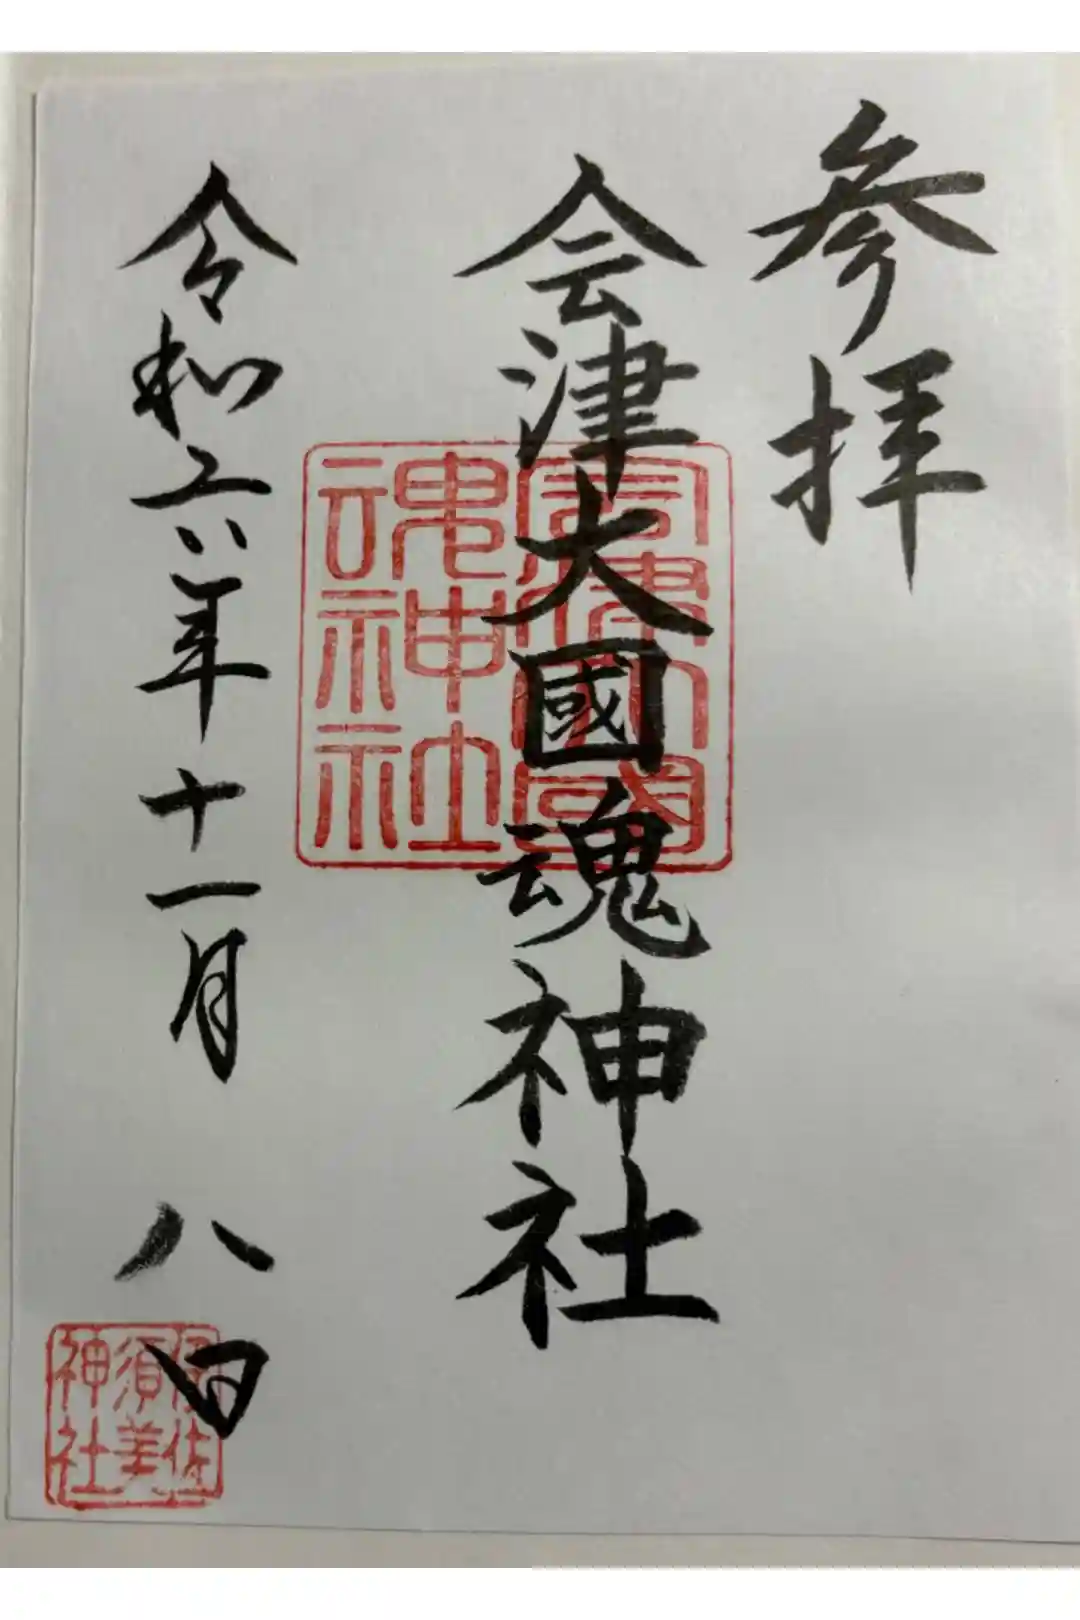 参拝
会津大國魂神社
會津大國魂神社
令和六年十一月八日
伊佐須美神社